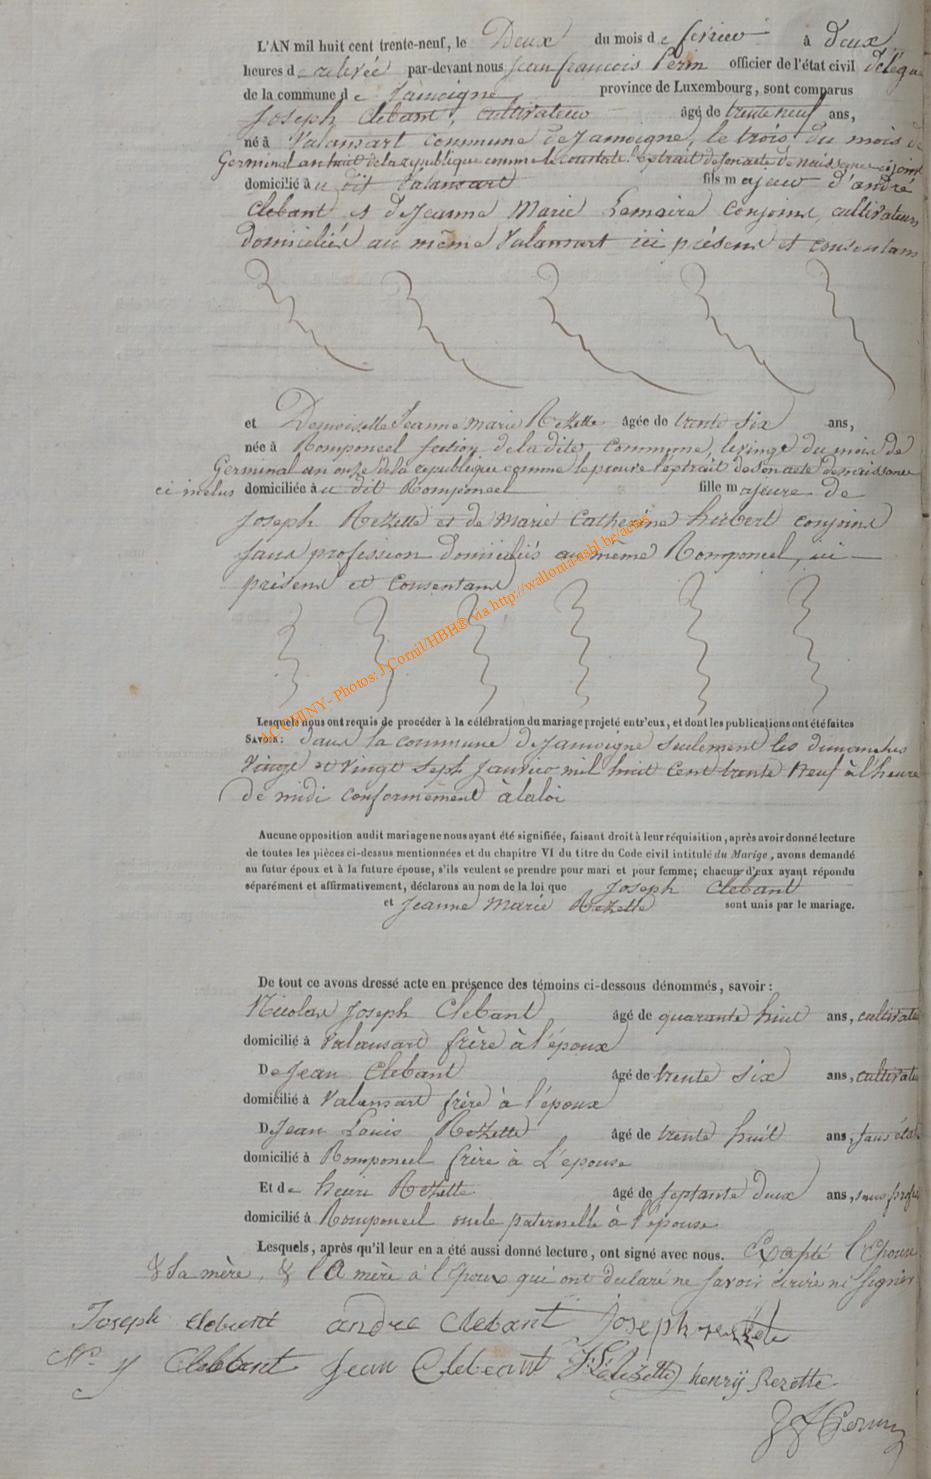 L'AN mil huit cent trente-neuf, le Deux du mois de février à deux
heures de relevée par-devant nous jean françois Perin officier de l'état civil délégué
de la commune de Jamoigne province de Luxembourg, sont comparus
Joseph Clebant, cultivateur âgé de trente neuf ans,
né à Valansart commune de Jamoigne, le trois du mois de
Germinal an huit de la republique comme le constate l'extrait de son acte de naissance ci joint
domicilié à u dit Valansart fils majeur d'andré
Clebant et de Jeanne Marie Lemaire conjoins, cultivateurs
domiciliés au même Valansart ici présens et consentans
et Demoiselle Jeanne Marie Rezette âgée de trente six ans,
née à Romponcel section de la dite commune, le vingt du mois de
Germinal an onze de la republique comme le prouve l'extrait de son acte de naissance
ci inclus domiciliée à u dit Romponcel fille majeure de
Joseph Rezette et de Marie Catherine hubert conjoins
sans profession domiciliés au même Romponcel, ici
présens et consentans
AC CHINY - Photos: J Cornil/HBH© via http://wallonia-asbl.be/actes
Lesquels nous ont requis de procéder à la célébration du mariage projeté entr'eux, et dont les publications ont été faites
SAVOIR: dans la commune de Jamoigne seulement les dimanches
vingt et vingt sept Janvier mil huit cent trente neuf à l'heure
de midi conformément à la loi
Aucune opposition audit mariage ne nous ayant été signifiée, faisant droit à leur réquisition, après avoir donné lecture
de toutes les pièces ci-dessus mentionnées et du chapitre VI du titre du Code civil intitulé du Marige, avons demandé
au futur époux et à la future épouse, s'ils veulent se prendre pour mari et pour femme; chacun d'eux ayant répondu
séparément et affirmativement, déclarons au nom de la loi que Joseph Clebant
et Jeanne Marie Rezette sont unis par le mariage.
De tout ce avons dressé acte en présence des témoins ci-dessous dénommés, savoir:
Nicolas Joseph Clebant âgé de quarante huit ans, cultivateur
domicilié à Valansart frère à l'époux
De Jean Clebant âgé de trente six ans, cultivateur
domicilié à Valansart frère à l'époux
De Jean Louis Rezette âgé de trente huit ans, sans état
domicilié à Romponcel frère à L'épouse
Et de henri Rezette âgé de septante deux ans, sans profes
domicilié à Romponcel oncle paternelle à l'épouse
Lesquels, après qu'il leur en a été aussi donné lecture, ont signé avec nous. Excepté l'Epouse
& sa mère, & la mère à l'époux qui ont declaré ne savoir écrire ni signer
Joseph clebant andre Clebant Joseph rezette
N. J Clebbant Jean Clebeant J: L: Rezette henry Rezette
J f Perin